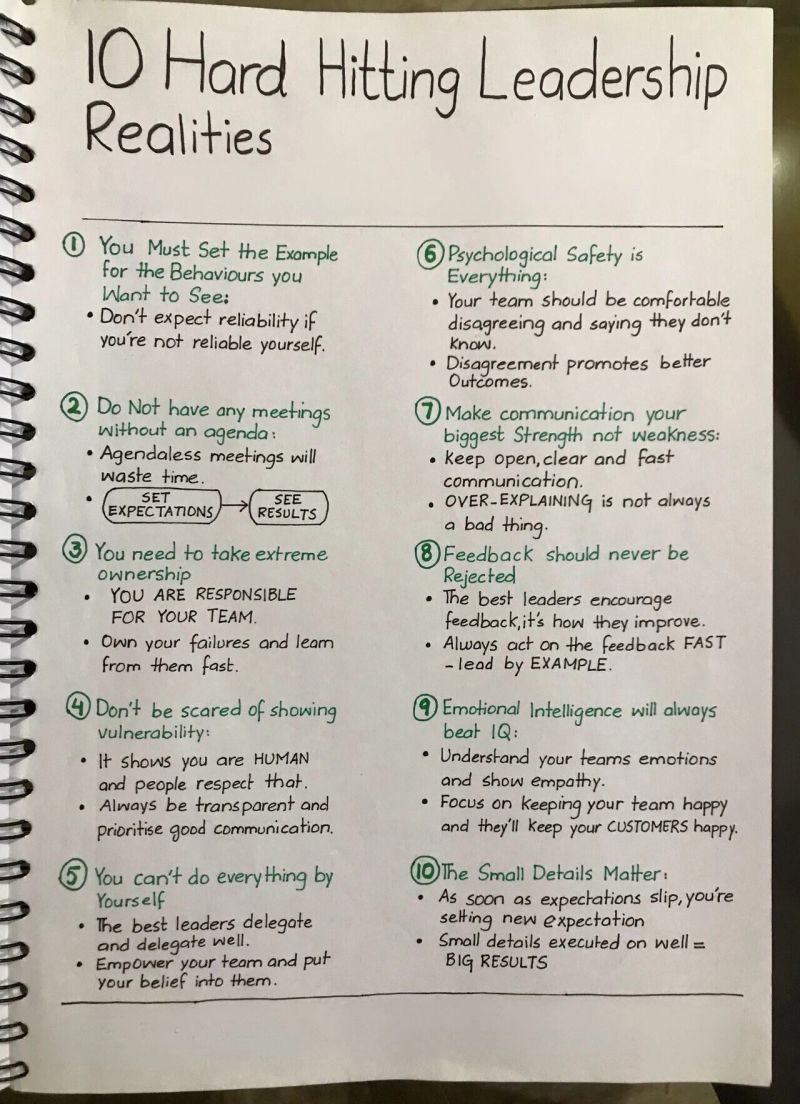 10 Hard Hitting Leadership
Realities
① You Must Set the Example
for the Behaviours you
Want to See:
• Don't expect reliability if
you're not reliable yourself.
② Do Not have any meetings
without an agenda:
• Agendaless meetings will
waste time.
• SET
EXPECTATIONS → SEE
RESULTS
③ You need to take extreme
ownership
• YOU ARE RESPONSIBLE
FOR YOUR TEAM.
• Own your failures and learn
from them fast.
④ Don't be scared of showing
vulnerability:
• It shows you are HUMAN
and people respect that.
• Always be transparent and
prioritise good communication.
⑤ You can't do everything by
Yourself
• The best leaders delegate
and delegate well.
• Empower your team and put
your belief into them.
⑥ Psychological Safety is
Everything:
• Your team should be comfortable
disagreeing and saying they don't
know.
• Disagreement promotes better
Outcomes.
⑦ Make communication your
biggest Strength not weakness:
• Keep open, clear and fast
communication.
• OVER-EXPLAINING is not always
a bad thing.
⑧ Feedback should never be
Rejected
• The best leaders encourage
feedback, it's how they improve.
• Always act on the feedback FAST
- lead by EXAMPLE.
⑨ Emotional Intelligence will always
beat IQ:
• Understand your teams emotions
and show empathy.
• Focus on keeping your team happy
and they'll keep your CUSTOMERS happy.
⑩ The Small Details Matter:
• As soon as expectations slip, you're
setting new expectation
• Small details executed on well =
BIG RESULTS